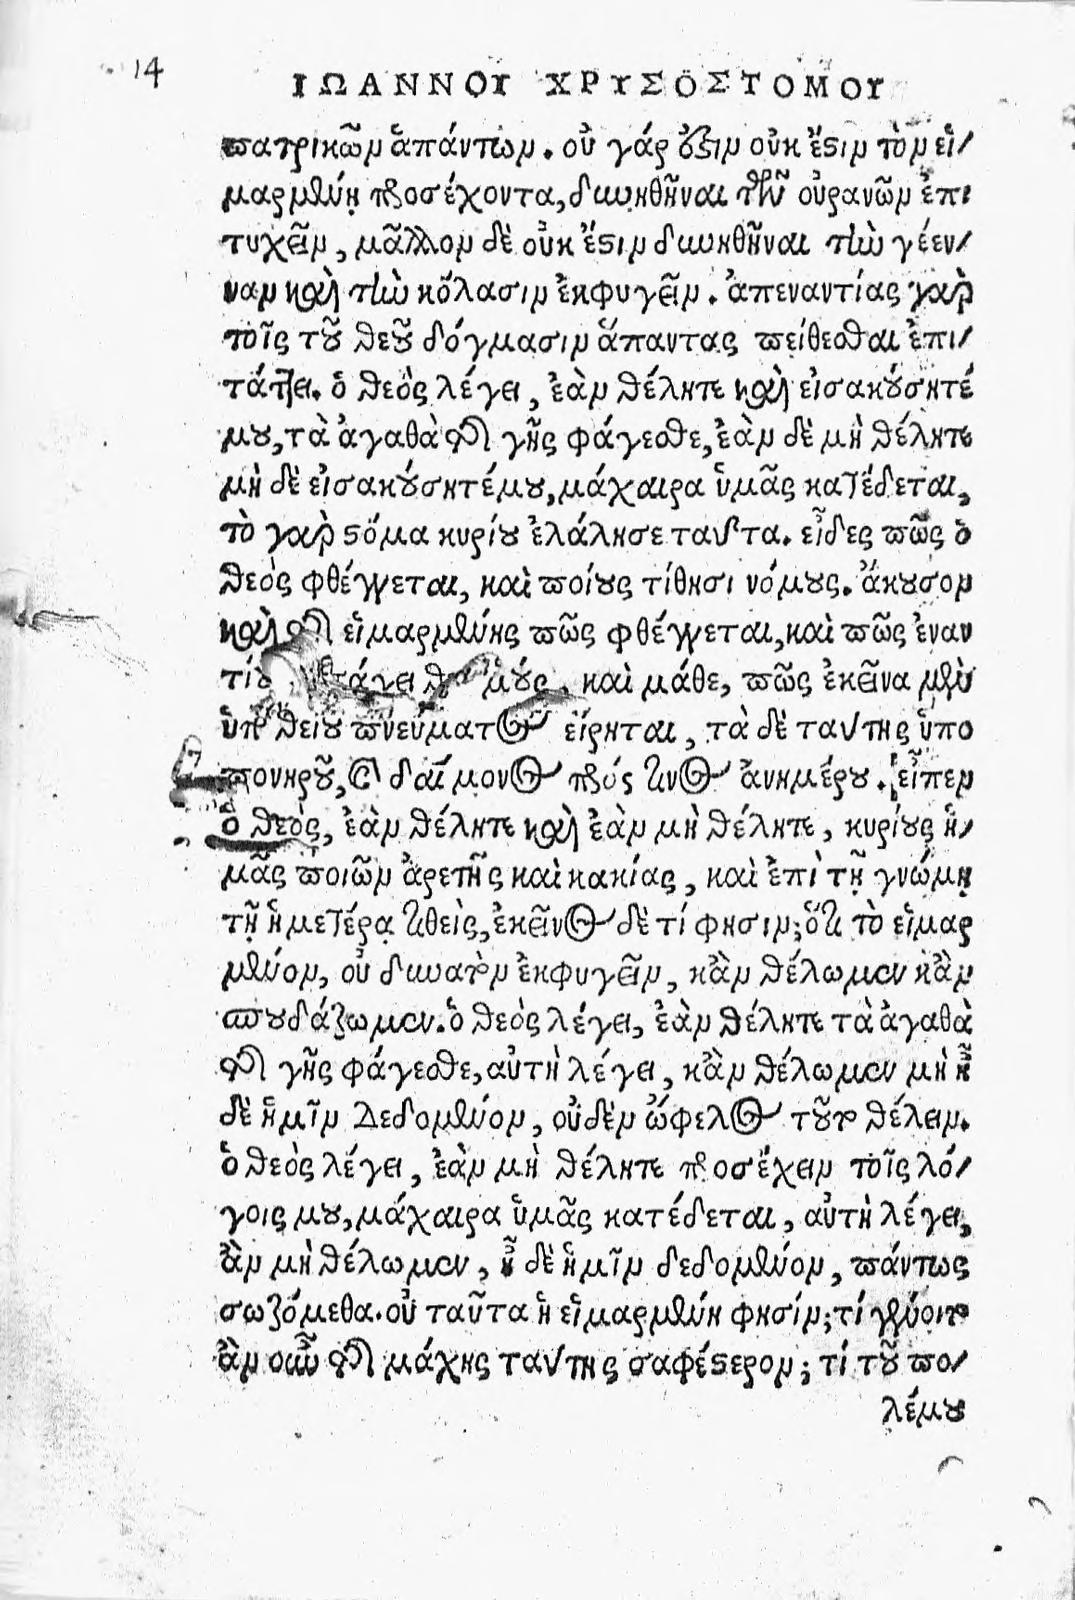 14
ΙΩΑΝΝΟΥ ΧΡΥΣΟΣΤΟΜΟΥ
πατρικῶν ἁπάντων. οὐ γάρ ἔστιν οὐκ ἔστιν τὸν εἱ/
μαρμένῃ προσέχοντα, δυνηθῆναι τῶν οὐρανῶν ἐπι
τυχεῖν, μᾶλλον δὲ οὐκ ἔστιν δυνηθῆναι τὴν γέεν/
ναν καὶ τὴν κόλασιν ἐκφυγεῖν. ἀπεναντίας γὰρ
τοῖς τοῦ θεοῦ δόγμασιν ἅπαντας πείθεσθαι ἐπι/
τάττει. ὁ θεὸς λέγει, ἐὰν θέλητε καὶ εἰσακούσητέ
μου, τὰ ἀγαθὰ τῆς γῆς φάγεσθε, ἐὰν δὲ μὴ θέλητε
μὴ δὲ εἰσακούσητέ μου, μάχαιρα ὑμᾶς κατέδεται,
τὸ γὰρ στόμα κυρίου ἐλάλησε ταῦτα. εἶδες πῶς ὁ
θεὸς φθέγγεται, καὶ ποίους τίθησι νόμους. ἄκουσον
καὶ τῆς εἱμαρμένης πῶς φθέγγεται, καὶ πῶς ἐναν
τίους νόμους, καὶ μάθε, πῶς ἐκεῖνα μὲν
ὑπὸ θείου πνεύματος εἴρηται, τὰ δὲ ταύτης ὑπο
πονηροῦ, καὶ δαίμονος πρός τινος ἀνημέρου. εἶπεν
ὁ θεὸς, ἐὰν θέλητε καὶ ἐὰν μὴ θέλητε, κυρίους ἡ/
μᾶς ποιῶν ἀρετῆς καὶ κακίας, καὶ ἐπὶ τῇ γνώμῃ
τῇ ἡμετέρᾳ τιθεὶς, ἐκεῖνος δὲ τί φησιν; ὅτι τὸ εἱμαρ
μένον, οὐ δυνατὸν ἐκφυγεῖν, κἂν θέλωμεν κἂν
σπουδάζωμεν. ὁ θεὸς λέγει, ἐὰν θέλητε τὰ ἀγαθὰ
τῆς γῆς φάγεσθε, αὐτὴ λέγει, κἂν θέλωμεν μὴ ᾖ
δὲ ἡμῖν Δεδομένον, οὐδὲν ὤφελος τοῦ θέλειν.
ὁ θεὸς λέγει, ἐὰν μὴ θέλητε προσέχειν τοῖς λό/
γοις μου, μάχαιρα ὑμᾶς κατέδεται, αὐτὴ λέγει,
ἂν μὴ θέλωμεν, ᾖ δὲ ἡμῖν δεδομένον, πάντως
σωζόμεθα. οὐ ταῦτα ἡ εἱμαρμένη φησίν; τί γένοιτο
ἂν οὖν τῆς μάχης ταύτης σαφέστερον; τί τοῦ πο/
λέμου